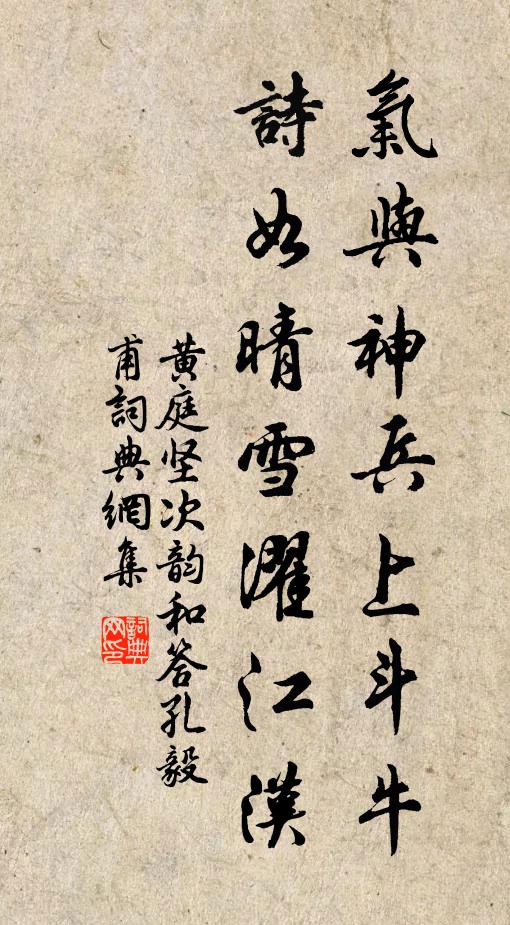 氣與神兵上斗牛
詩如晴雪濯江漢
黄庭坚次韵和答孔毅
甫詞典網集
詞典
网印